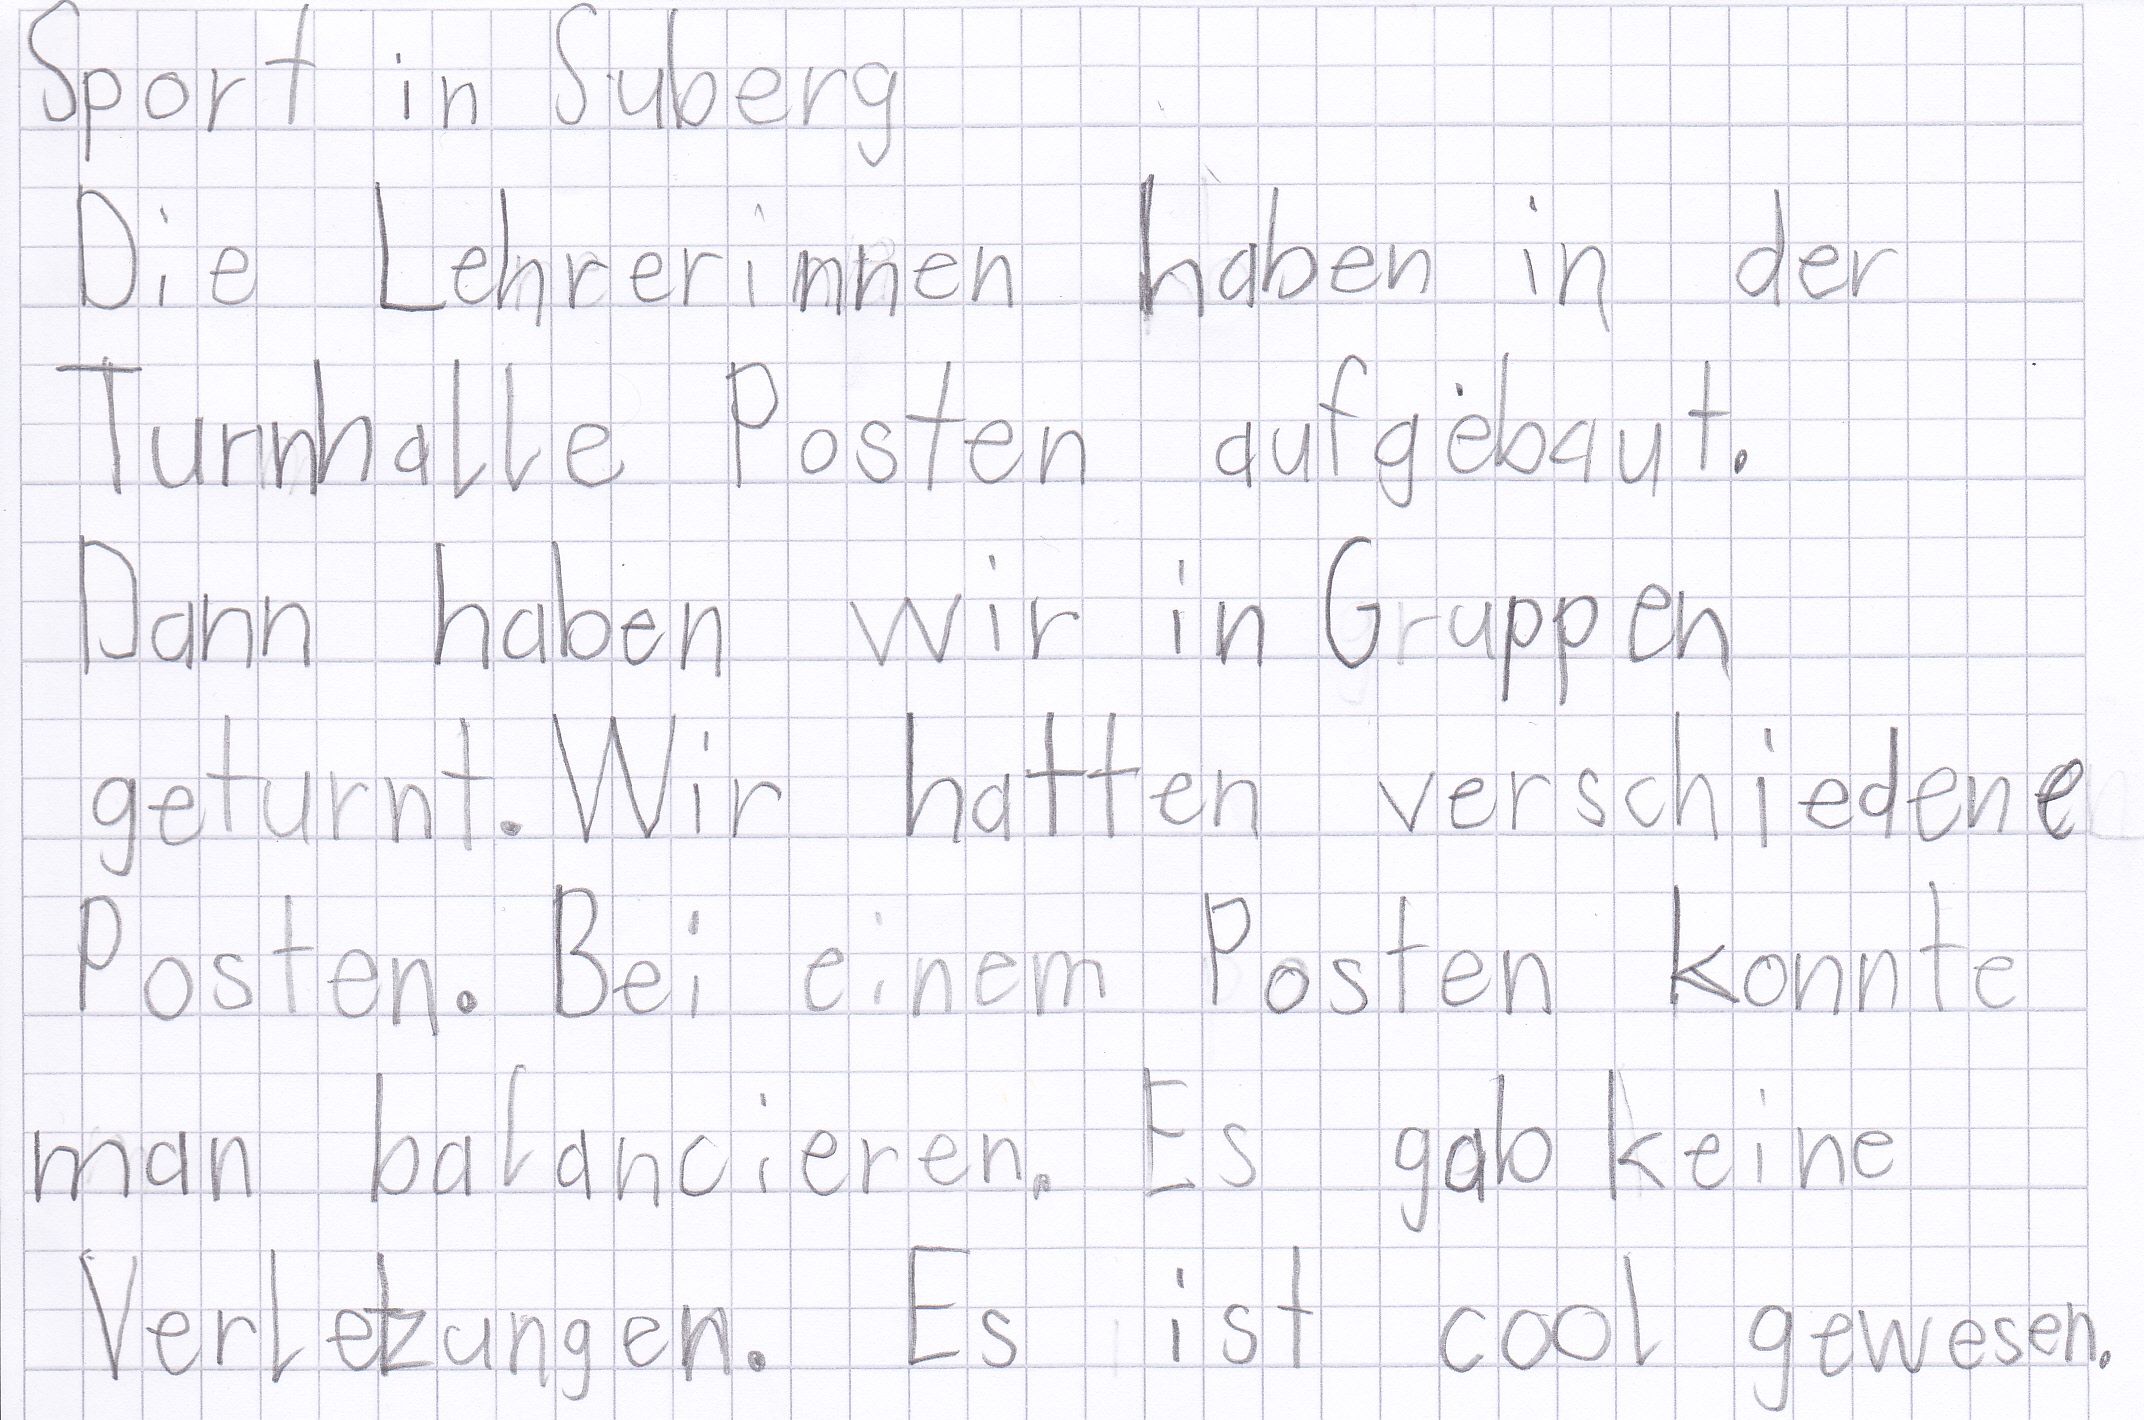 Sport in Suberg
Die Lehrerinnen haben in der
Turnhalle Posten aufgebaut.
Dann haben wir in Gruppen
geturnt. Wir hatten verschiedene
Posten. Bei einem Posten konnte
man balancieren. Es gab keine
Verletzungen. Es ist cool gewesen.